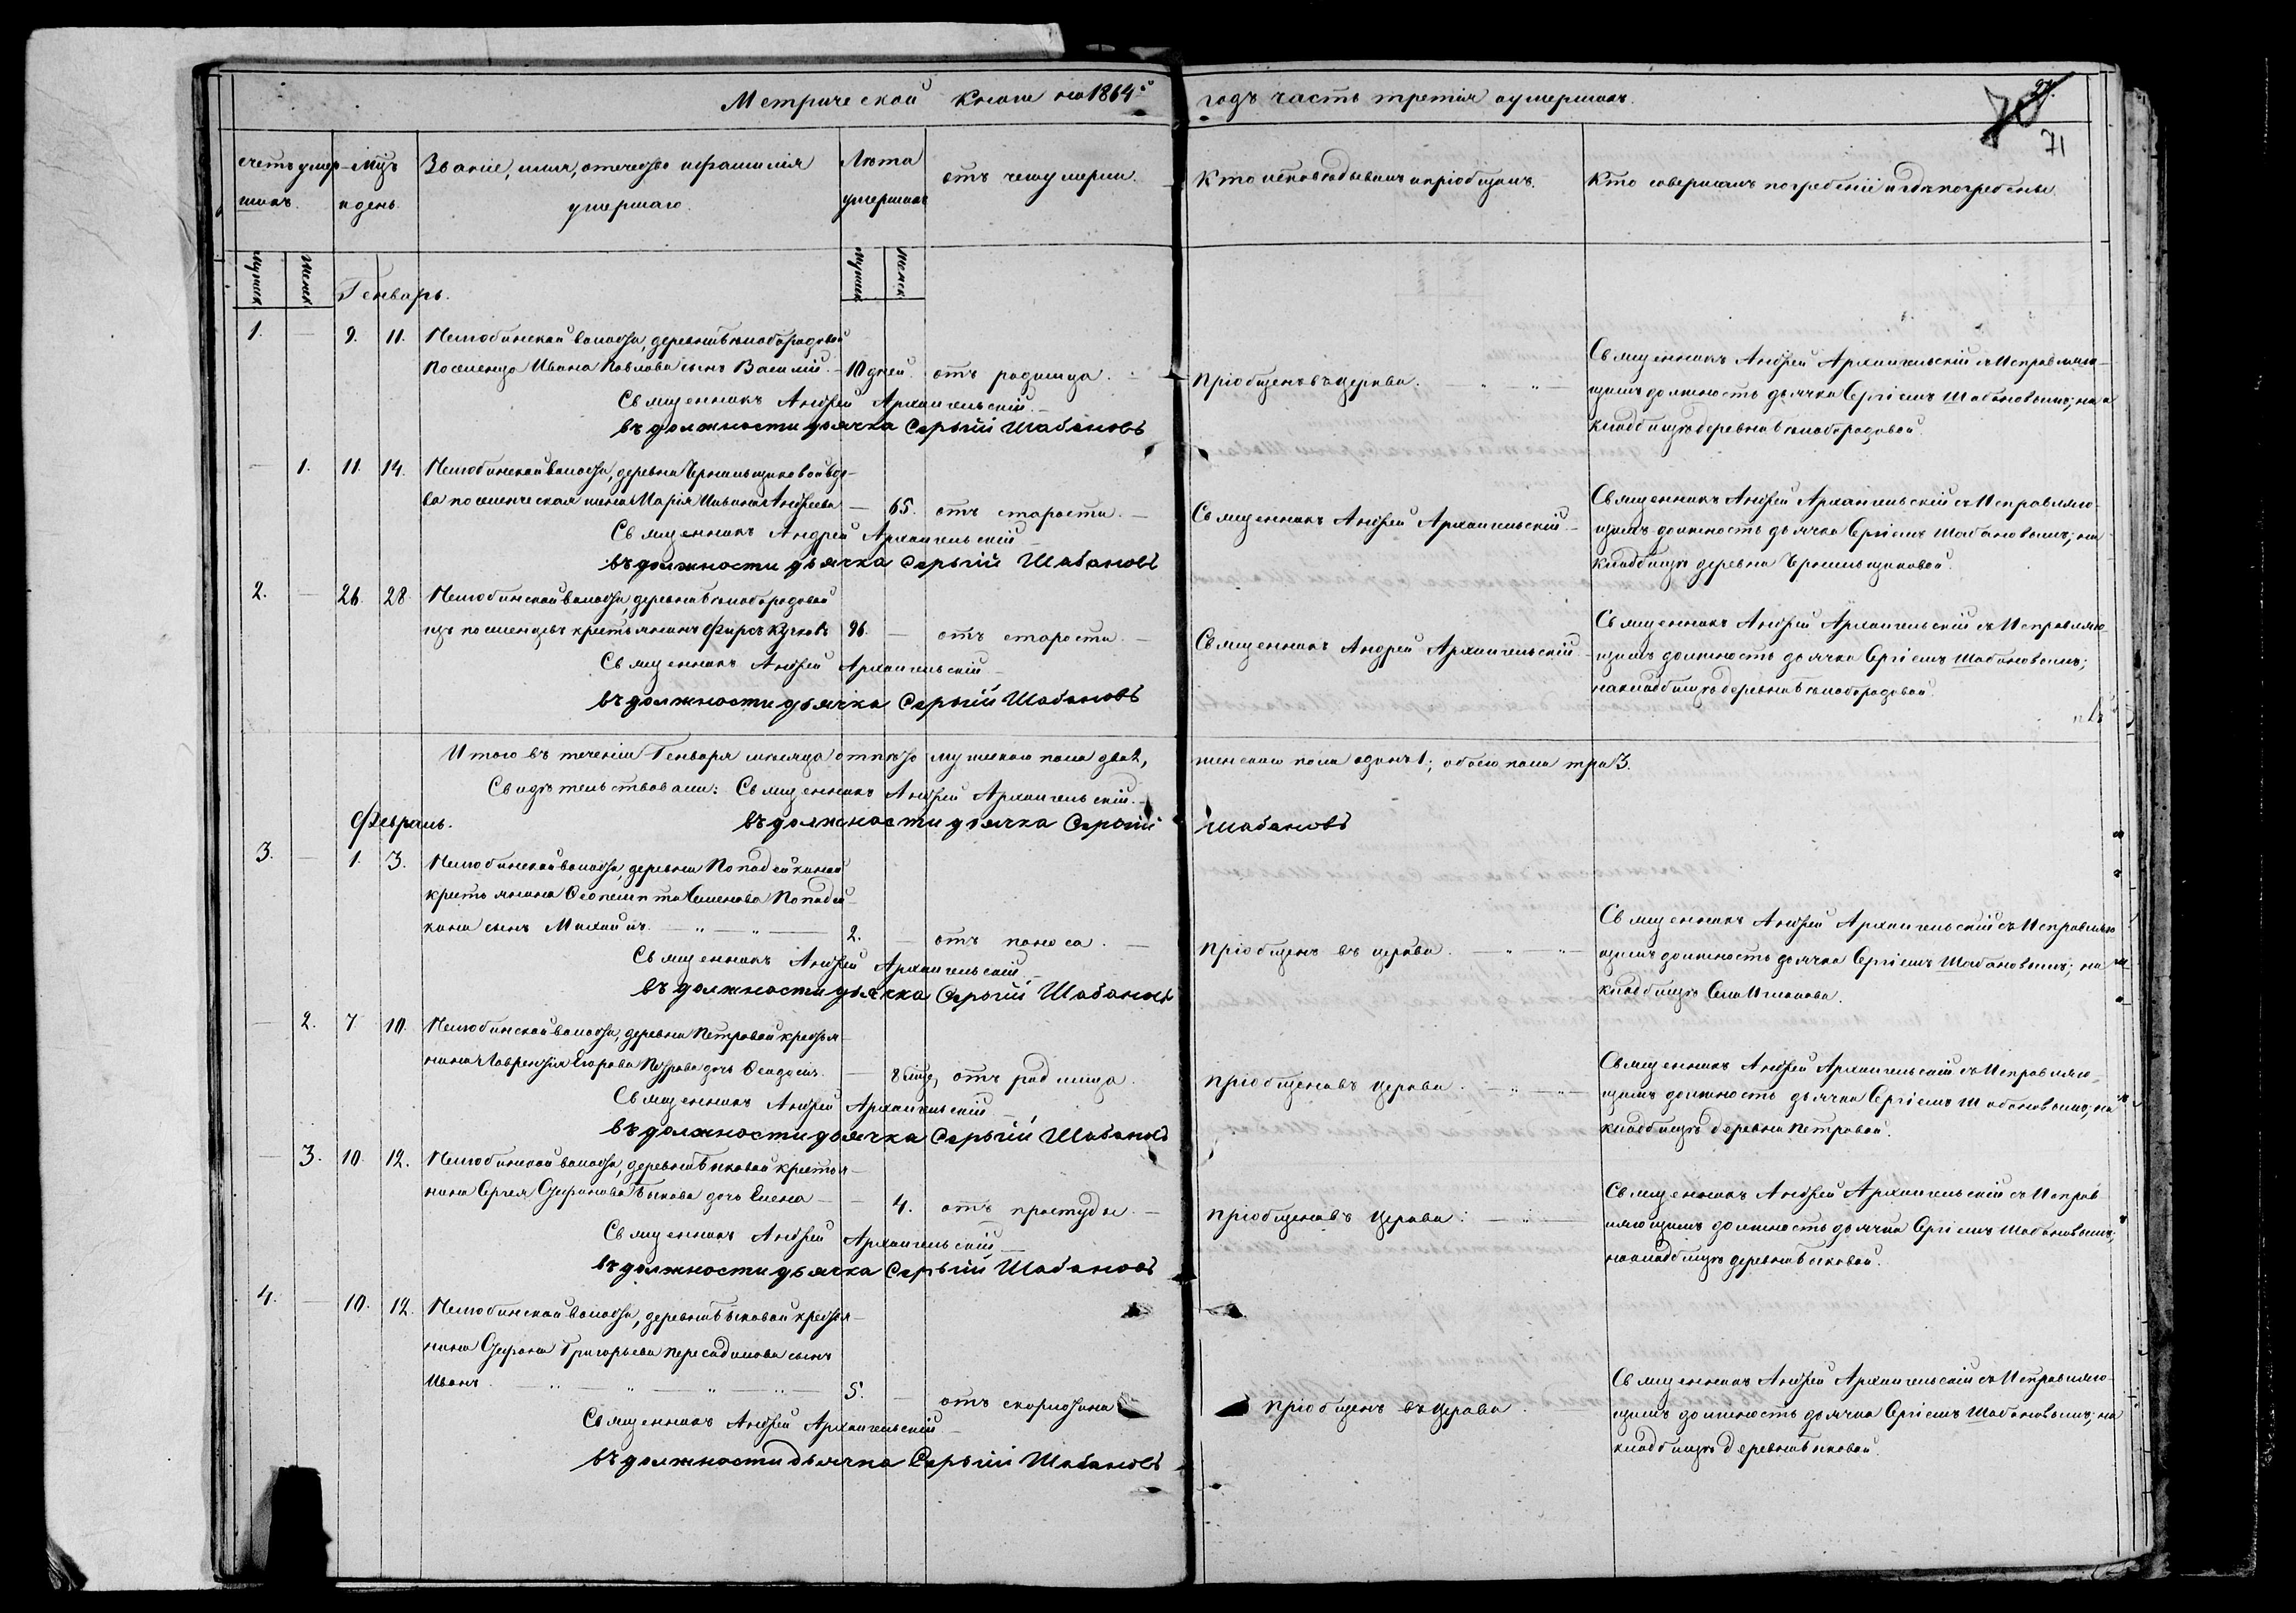 Метрической Книги на 1864й годъ часть третія о умершихъ.
71
счетъ умершихъ.
Мцъ и день.
Званіе, имя, отечество и фамилія умершаго.
Лѣта умершихъ
отъ чего умерли.
Кто исповѣдывалъ и пріобщалъ.
Кто совершалъ погребеніе и гдѣ погребены.
Мужеск
Женск
Мужеск
Женск
Генварь.
1. — 9. 11. Пелюбинской волости, деревни Бѣлобородовой
поселенца Ивана Павлова сынъ Василій. — 10 дней. отъ родимца. —
Священникъ Андрей Архангельскій. —
въ должности дьячка Сергѣй Шабановъ
Пріобщенъ въ церкви. — „ — „ —
Священникъ Андрей Архангельскій съ Исправляю-
щимъ должность дьячка Сергіемъ Шабановымъ; на
кладбищѣ деревни Бѣлобородовой.
— 1. 11. 14. Пелюбинской волости, деревни Чернильщиковой вдо-
ва поселенческая жена Марія Андреева — 65. отъ старости. —
Священникъ Андрей Архангельскій
въ должности дьячка Сергѣй Шабановъ
Священникъ Андрей Архангельскій —
Священникъ Андрей Архангельскій съ Исправляю-
щимъ должность дьячка Сергіемъ Шабановымъ; на
кладбищѣ деревни Чернильщиковой.
2. — 26. 28. Пелюбинской волости, деревни Бѣлобородовой
изъ поселенцевъ крестьянинъ Фирсъ 96. — отъ старости. —
Священникъ Андрей Архангельскій —
въ должности дьячка Сергѣй Шабановъ
Священникъ Андрей Архангельскій. —
Священникъ Андрей Архангельскій съ Исправляю-
щимъ должность дьячка Сергіемъ Шабановымъ;
на кладбищѣ деревни Бѣлобородовой.
Итого въ теченіи Генваря мѣсяца мужескаго пола два 2, женскаго пола одинъ 1; обоего пола три 3.
Свидѣтельствовали: Священникъ Андрей Архангельскій. —
въ должности дьячка Сергѣй Шабановъ
Февраль.
3. — 1. 3. Пелюбинской волости, деревни Попадейкиной
крестьянина Ѳеопемпта Семенова Попадей-
кина сынъ Михаилъ. — „ — „ — 2. — отъ поноса. —
Священникъ Андрей Архангельскій. —
въ должности дьячка Сергѣй Шабановъ
Пріобщенъ въ церкви. — „ — „ —
Священникъ Андрей Архангельскій съ Исправляю
щимъ должность дьячка Сергіемъ Шабановымъ; на
кладбищѣ Села Иштанова.
— 2. 7 10. Пелюбинской волости, деревни Петровой крестья-
нина Лаврентія Егорова Петрова дочь Ѳеодосія. — 8 мцъ, отъ родимца.
Священникъ Андрей Архангельскій —
въ должности дьячка Сергѣй Шабановъ
Пріобщена въ церкви. — „ — „ —
Священникъ Андрей Архангельскій съ Исправляю-
щимъ должность дьячка Сергіемъ Шабановымъ; на
кладбищѣ деревни Петровой.
— 3. 10. 12. Пелюбинской волости, деревни Быковой крестья-
нина Сергея Стефанова Быкова дочь Елена — 4. отъ простуды. —
Священникъ Андрей Архангельскій —
въ должности дьячка Сергѣй Шабановъ
Пріобщена въ церкви. — „ —
Священникъ Андрей Архангельскій съ Исправ-
ляющимъ должность дьячка Сергіемъ Шабановымъ;
на кладбищѣ деревни Быковой.
4. — 10. 12. Пелюбинской волости, деревни Быковой крестья-
нина Стефана Григорьева Пересадимова сынъ
Иванъ. — „ — „ — „ — „ — 5. — отъ скорлотина
Священникъ Андрей Архангельскій —
въ должности дьячка Сергѣй Шабановъ
Пріобщенъ въ церкви.
Священникъ Андрей Архангельскій съ Исправляю-
щимъ должность дьячка Сергіемъ Шабановымъ; на
кладбищѣ деревни Быковой.